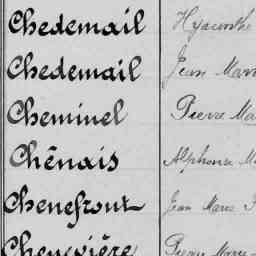 Chedemail Hyacinthe
Chedemail Jean Marie
Cheminel Pierre Ma
Chênais Alphonse M
Chenefront Jean Marie
Chenevière Pierre Marie